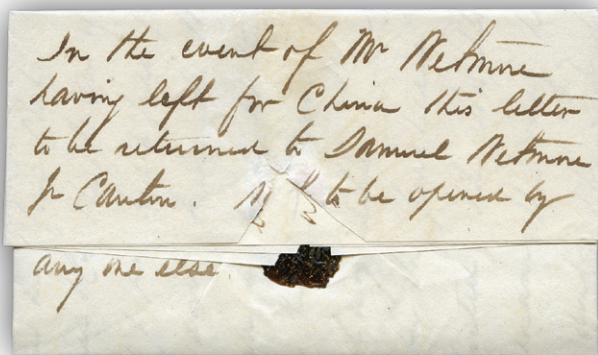 In the event of Mr Wetmore
having left for China this letter
to be returned to Samuel Wetmore
Jr Canton. to be opened by
any one else.